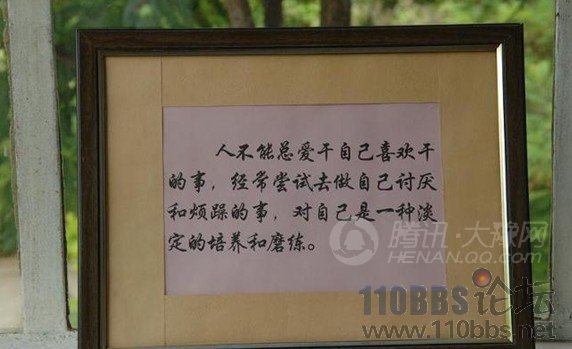 人不能总爱干自己喜欢干
的事，经常尝试去做自己讨厌
和烦躁的事，对自己是一种淡
定的培养和磨练。
腾讯·大豫网
HENAN.QQ.COM
110BBS论坛
www.110bbs.net